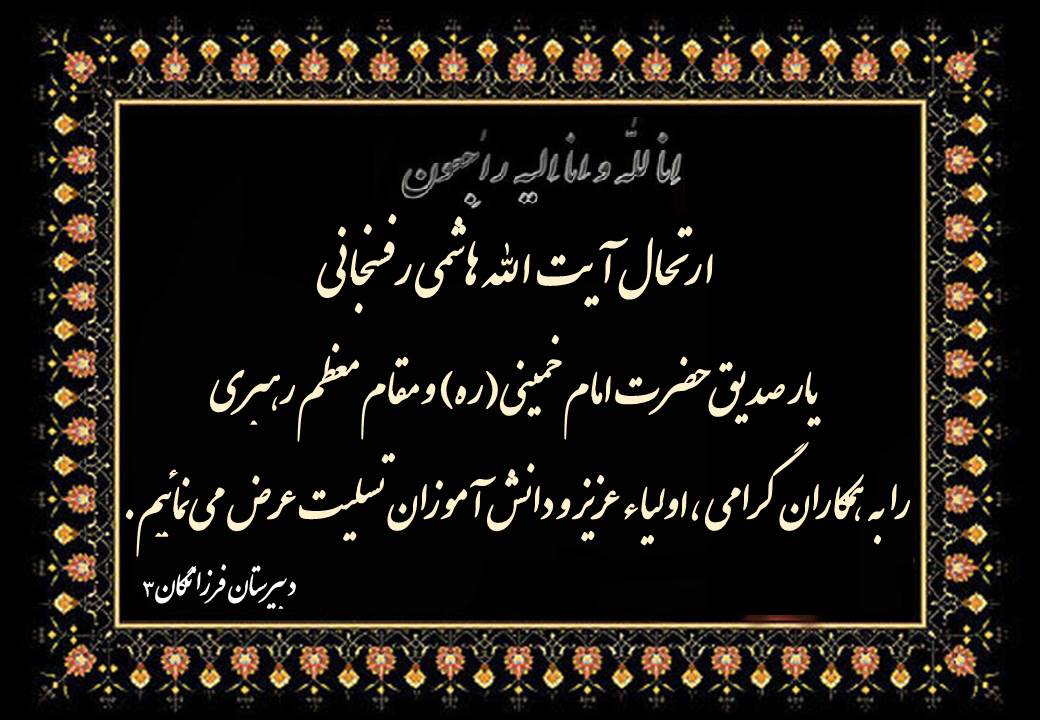 انا لله و انا الیه راجعون
ارتحال آیت الله هاشمی رفسنجانی
یار صدیق حضرت امام خمینی(ره) و مقام معظم رهبری
را به همکاران گرامی ، اولیاء عزیز و دانش آموزان تسلیت عرض می نمائیم .
دبیرستان فرزانگان ۳